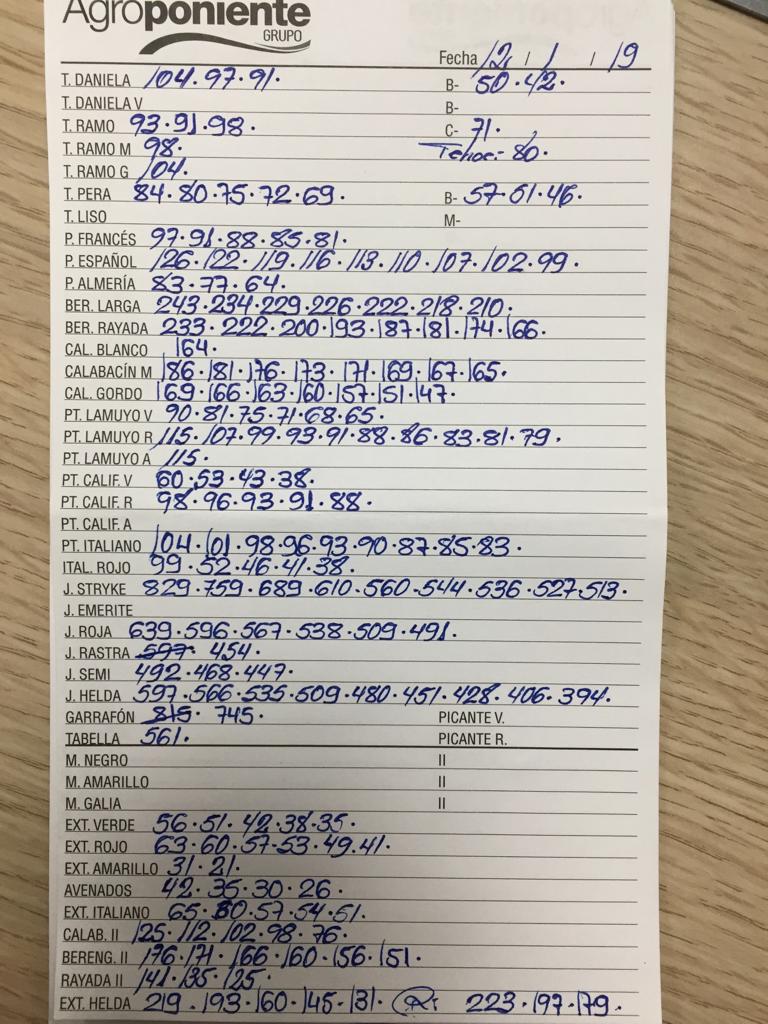 Agroponiente
GRUPO
Fecha 12 / 1 / 19
T. DANIELA 104. 97. 91. B- 50. 42.
T. DANIELA V B-
T. RAMO 93. 91. 98. C- 71.
T. RAMO M 98. 80.
T. RAMO G 104.
T. PERA 84. 80. 75. 72. 69. B- 57. 51. 46.
T. LISO M-
P. FRANCÉS 97. 91. 88. 85. 81.
P. ESPAÑOL 126. 122. 119. 116. 113. 110. 107. 102. 99.
P. ALMERÍA 83. 77. 64.
BER. LARGA 243. 234. 229. 226. 222. 218. 210.
BER. RAYADA 233. 222. 200. 193. 187. 181. 174. 166.
CAL. BLANCO 164.
CALABACÍN M 186. 181. 176. 173. 171. 169. 167. 165.
CAL. GORDO 169. 166. 163. 160. 157. 151. 147.
PT. LAMUYO V 90. 81. 75. 71. 68. 65.
PT. LAMUYO R 115. 107. 99. 93. 91. 88. 86. 83. 81. 79.
PT. LAMUYO A 115.
PT. CALIF. V 60. 53. 43. 38.
PT. CALIF. R 98. 96. 93. 91. 88.
PT. CALIF. A
PT. ITALIANO 104. 101. 98. 96. 93. 90. 87. 85. 83.
ITAL. ROJO 99. 52. 46. 41. 38.
J. STRYKE 829. 759. 689. 610. 560. 544. 536. 527. 513.
J. EMERITE
J. ROJA 639. 596. 567. 538. 509. 491.
J. RASTRA 597 454.
J. SEMI 492. 468. 447.
J. HELDA 597. 566. 535. 509. 480. 451. 428. 406. 394.
GARRAFÓN 815. 745. PICANTE V.
TABELLA 561. PICANTE R.
M. NEGRO II
M. AMARILLO II
M. GALIA II
EXT. VERDE 56. 51. 42. 38. 35.
EXT. ROJO 63. 60. 57. 53. 49. 41.
EXT. AMARILLO 31. 21.
AVENADOS 42. 35. 30. 26.
EXT. ITALIANO 65. 60. 57. 54. 51.
CALAB. II 125. 112. 102. 98. 76.
BERENG. II 176. 171. 166. 160. 156. 151.
RAYADA II 141. 135. 125.
EXT. HELDA 219. 193. 160. 145. 131. 223. 197. 179.